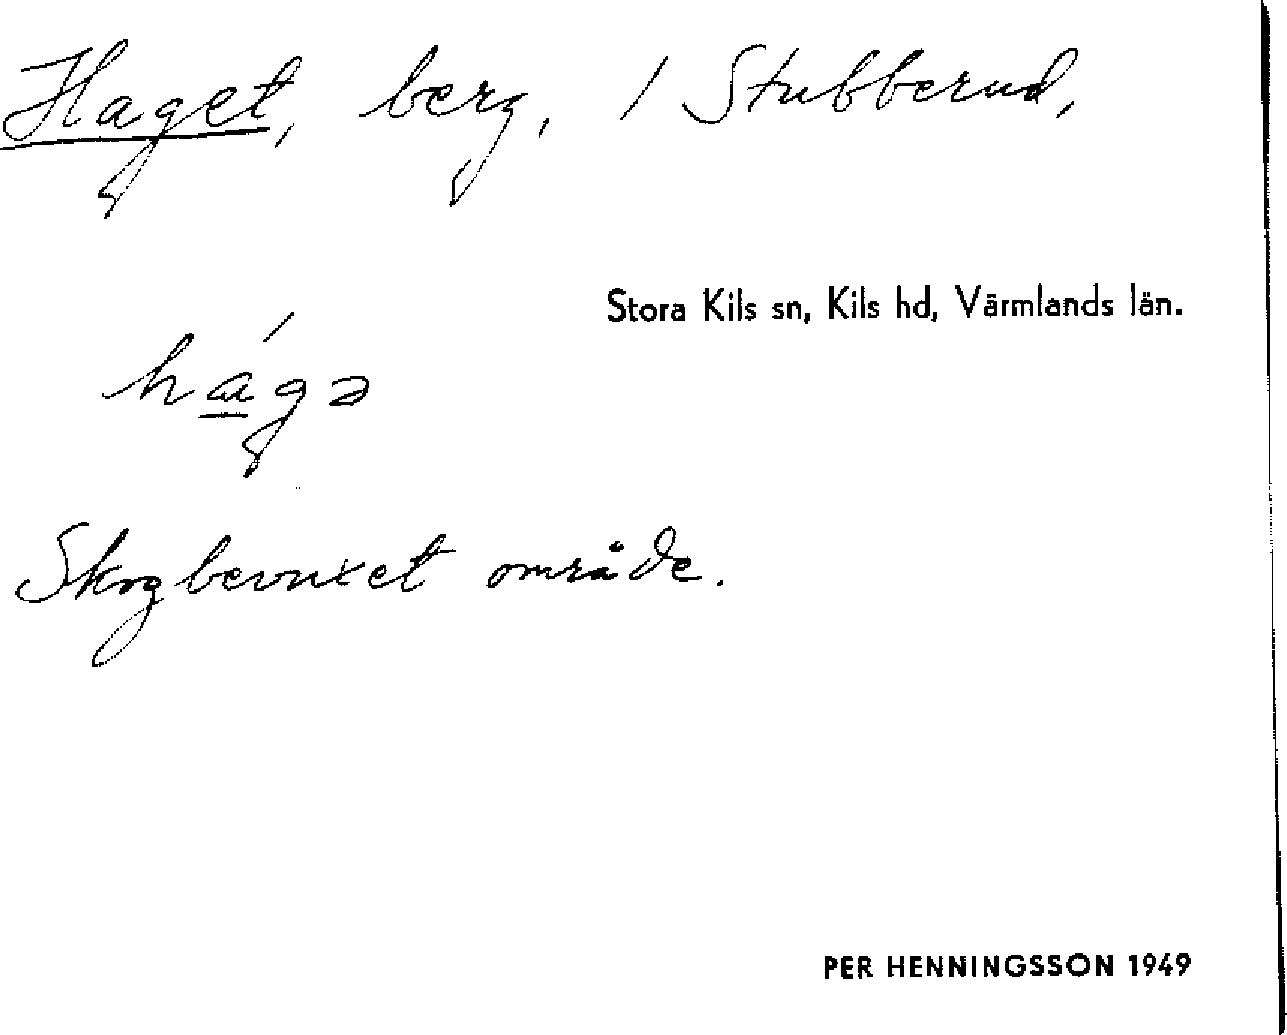 Haget, berg, / Stubberud,
Stora Kils sn, Kils hd, Värmlands län.
há̱gə
Skogbevuxet område.
PER HENNINGSSON 1949